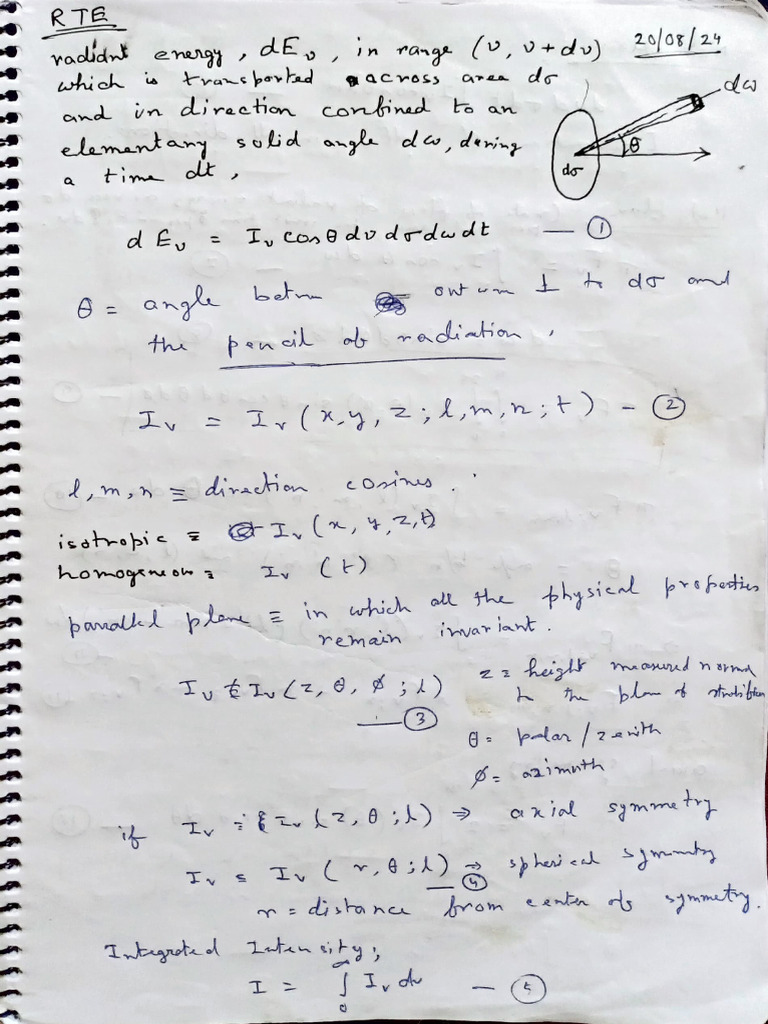 RTE
20/08/24
radidnt energy, dEν, in range (ν, ν+dν)
which is transported across area dσ
and in direction confined to an
elementary solid angle dω, during
a time dt,
dω
θ
dσ
dEν = Iν cosθ dν dσ dω dt — ①
θ = angle betwn ⊥ to dσ and
the pencil of radiation,
Iν = Iν (x, y, z; l, m, n; t) — ②
l, m, n ≡ direction cosines.
isotropic ≡ Iν (x, y, z, t)
homogeneous = Iν (t)
parallel plane ≡ in which all the physical properties
remain invariant.
Iν Iν (z, θ, φ; t) — ③
z = height measured normal
to the plane of
θ = polar / zenith
φ = azimuth
if Iν Iν (z, θ; t) ⇒ axial symmetry
Iν = Iν (r, θ; t) ⇒ spherical symmetry
— ④
r = distance from center of symmetry.
Integrated Intensity;
I = ∫₀^∞ Iν dν — ⑤